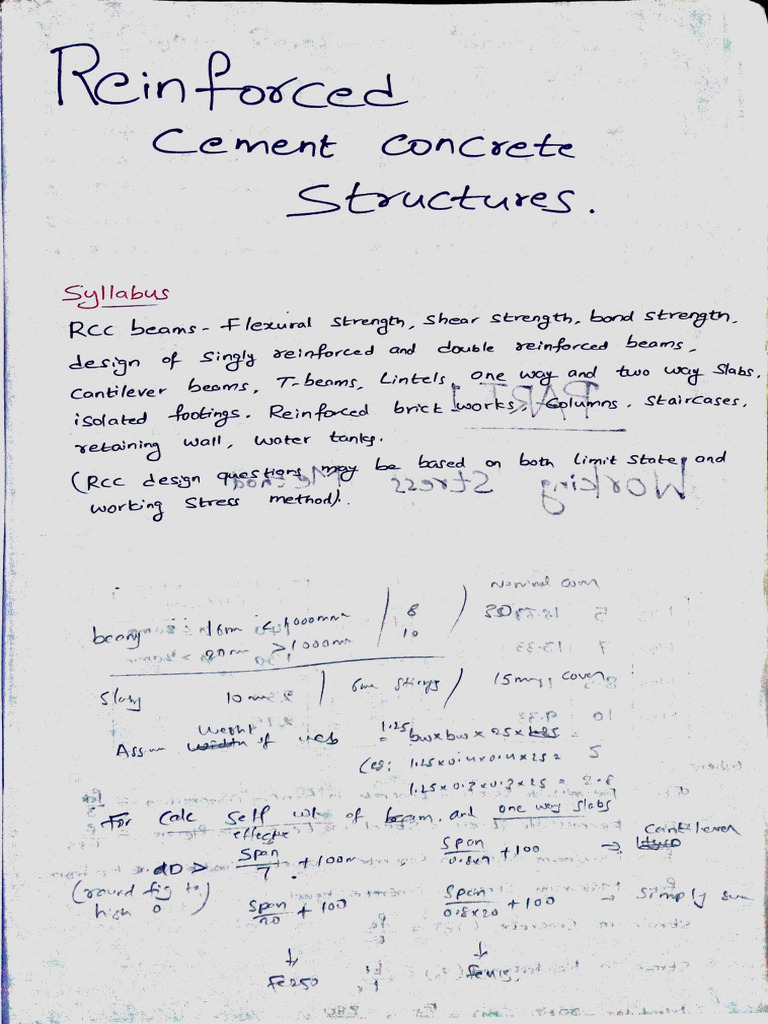 Reinforced
Cement Concrete
Structures.
Syllabus
RCC beams - Flexural strength, shear strength, bond strength,
design of singly reinforced and double reinforced beams,
cantilever beams, T-beams, Lintels, one way and two way slabs,
isolated footings. Reinforced brick works, Columns, staircases,
retaining wall, water tanks.
(RCC design questions may be based on both limit state and
working stress method).
nominal
beams 16m < 1000mm / 8 /
20m > 1000mm 10
Slabs 10mm / 6mm / 15mm, cover
Assum Weight of web = 1.25 bw x bw x 25
(eg: 1.25 x 0.4 x 0.4 x 25 = 5
1.25 x 0.3 x 0.3 x 25 = 2.8
For calc self wt of beam, and one way slabs
effective
D > span/7 + 100 span/0.8x7 + 100 → cantilever
(round fig to
high 0) span/20 + 100 span/0.8x20 + 100 → simply
↓ ↓
Fe250 Fe415